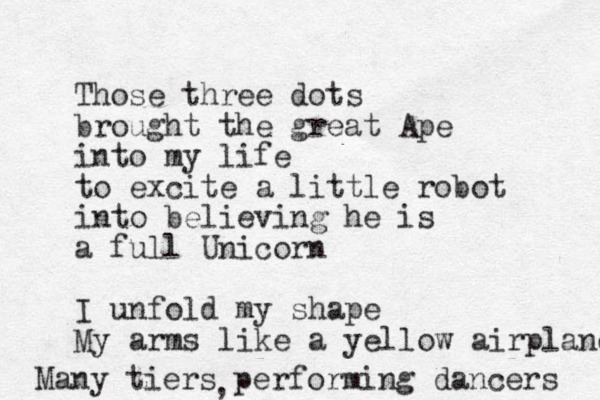 Those three dots
brought the great Ape
into my life
to excite a little robot
into believing he is
a full Unicorn
I unfold my shape
My arms like a yellow airplane
Many tiers, performing dancers